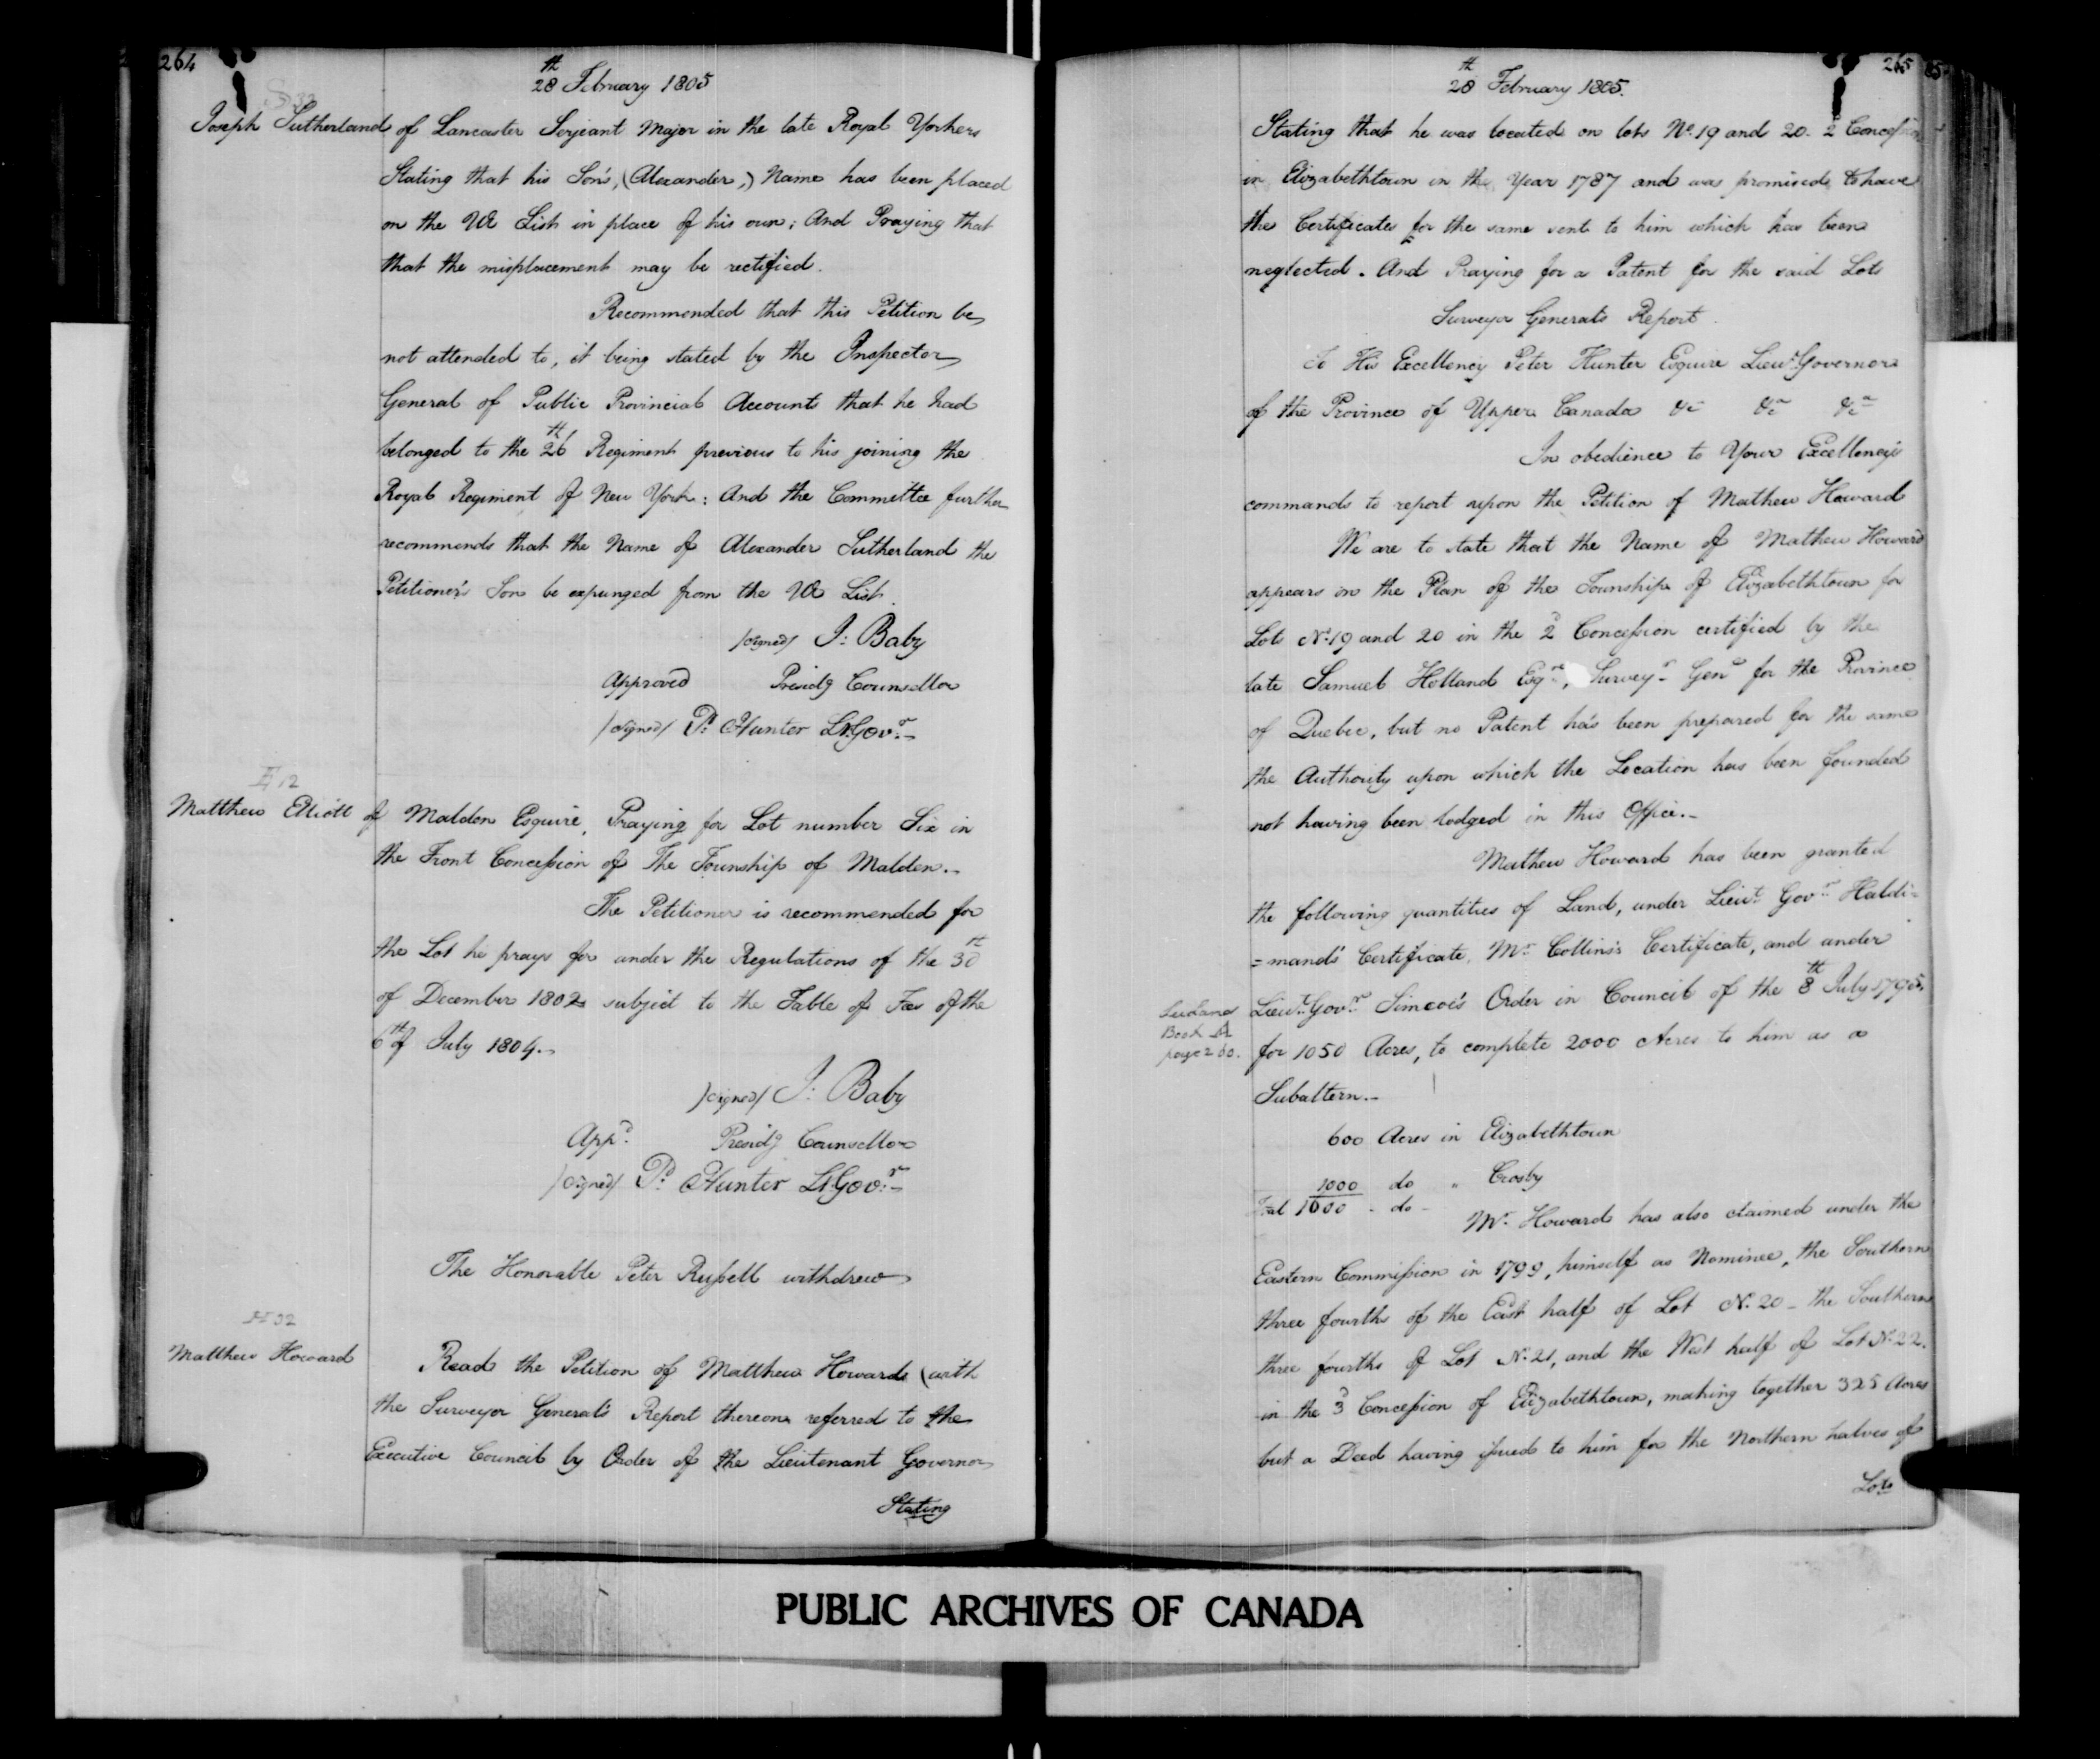 264
28th February 1805
S 33
Joseph Sutherland of Lancaster Serjeant Major in the late Royal Yorkers
Stating that his Son's, (Alexander,) Name has been placed
on the UE List in place of his own; And Praying that
that the misplacement may be rectified.
Recommended that this Petition be
not attended to, it being stated by the Inspector
General of Public Provincial Accounts that he had
belonged to the 26th Regiment previous to his joining the
Royal Regiment of New York: And the Committee further
recommends that the Name of Alexander Sutherland the
Petitioner's Son be expunged from the UE List.
/signed/ J: Baby
Approved Presidg Counsellor
/signed/ P: Hunter Lt Govr.
E 12
Matthew Elliott of Malden Esquire, Praying for Lot number Six in
the Front Concession of The Township of Malden.
The Petitioner is recommended for
the Lot he prays for under the Regulations of the 30th
of December 1802 subject to the Table of Fees of the
6th of July 1804.
/signed/ J: Baby
Appd. Presidg Counsellor
/signed/ P: Hunter Lt Govr.
The Honorable Peter Russell withdrew
H 32
Matthew Howard
Read the Petition of Matthew Howard (with
the Surveyor General's Report thereon referred to the
Executive Council by Order of the Lieutenant Governor
Stating
265
28th February 1805.
Stating that he was located on lots No. 19 and 20. 2d Concession
in Elizabethtown in the Year 1787 and was promised to have
the Certificates for the same sent to him which has been
neglected. And Praying for a Patent for the said Lots
Surveyor Generals Report.
To His Excellency Peter Hunter Esquire Lieut. Governor
of the Province of Upper Canada &c &c &c
In obedience to Your Excellency's
commands to report upon the Petition of Mathew Howard
We are to state that the Name of Mathew Howard
appears on the Plan of the Township of Elizabethtown for
Lots No. 19 and 20 in the 2d Concession certified by the
late Samuel Holland Esqre, Surveyr Genl for the Province
of Quebec, but no Patent has been prepared for the same
the Authority upon which the Location has been founded
not having been lodged in this Office.
Mathew Howard has been granted
the following quantities of Land, under Lieut. Govr. Haldi=
=mand's Certificate, Mr. Collins's Certificate, and under
Lieut. Govr. Simcoe's Order in Council of the 8th July 1795,
See Land
Book A
page 260.
for 1050 Acres, to complete 2000 Acres to him as a
Subaltern.
600 Acres in Elizabethtown
1000 do " Crosby
Total 1600 - do -
Mr. Howard has also claimed under the
Eastern Commission in 1799, himself as Nominee, the Southern
three fourths of the East half of Lot No. 20 - the Southern
three fourths of Lot No. 21, and the West half of Lot No. 22.
in the 3d Concession of Elizabethtown, making together 325 Acres
but a Deed having issued to him for the Northern halves of
Lots
PUBLIC ARCHIVES OF CANADA